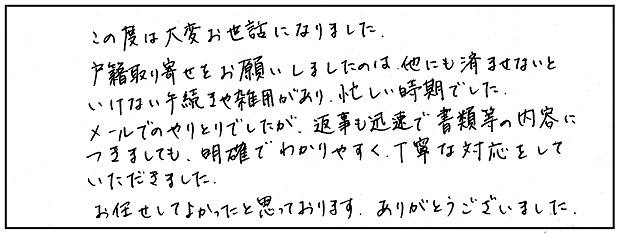 この度は大変お世話になりました.
戸籍取り寄せをお願いしましたのは、他にも済ませないと
いけない手続きや雑用があり、忙しい時期でした.
メールでのやりとりでしたが、返事も迅速で書類等の内容に
つきましても、明確でわかりやすく、丁寧な対応をして
いただきました.
お任せしてよかったと思っております. ありがとうございました.